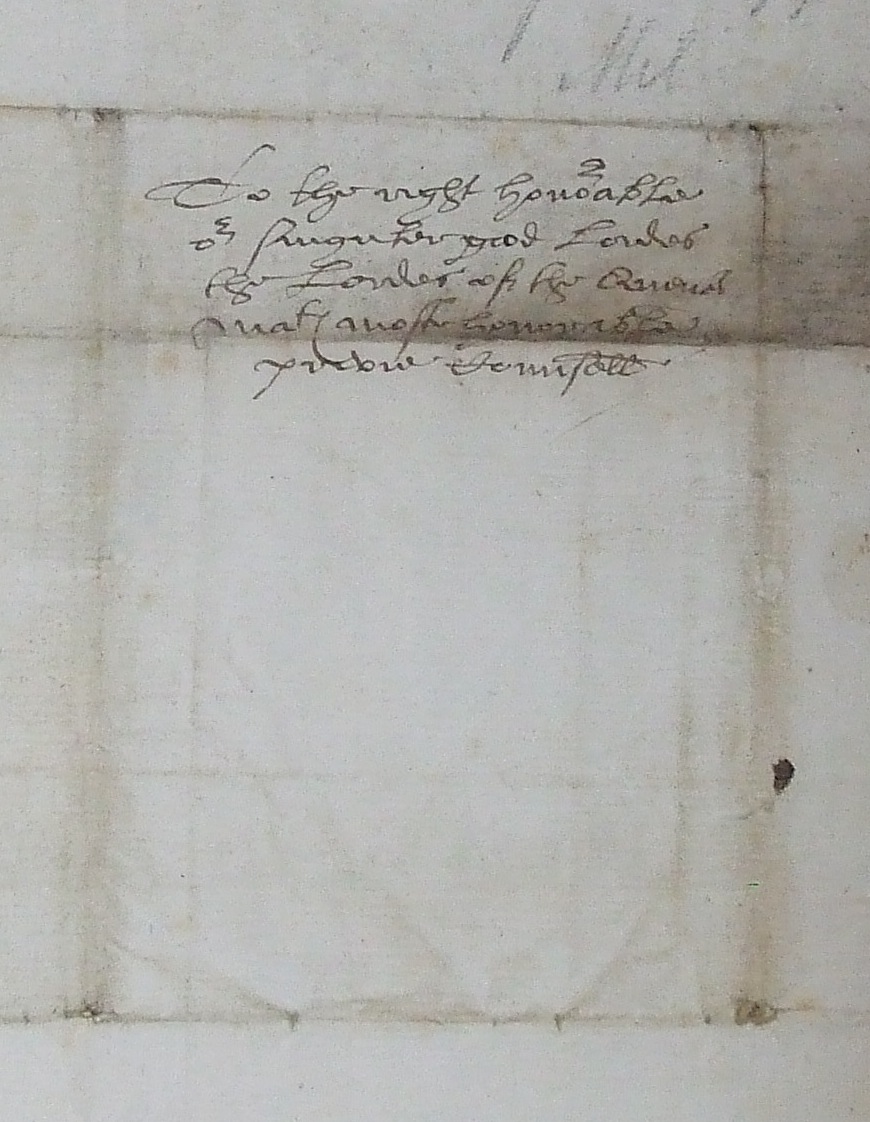 Mil
To the right hono^r^able
o^r^ singuler good Lordes
the Lordes of the Quenes
ma^ti^ moste honorable
previe Counsell